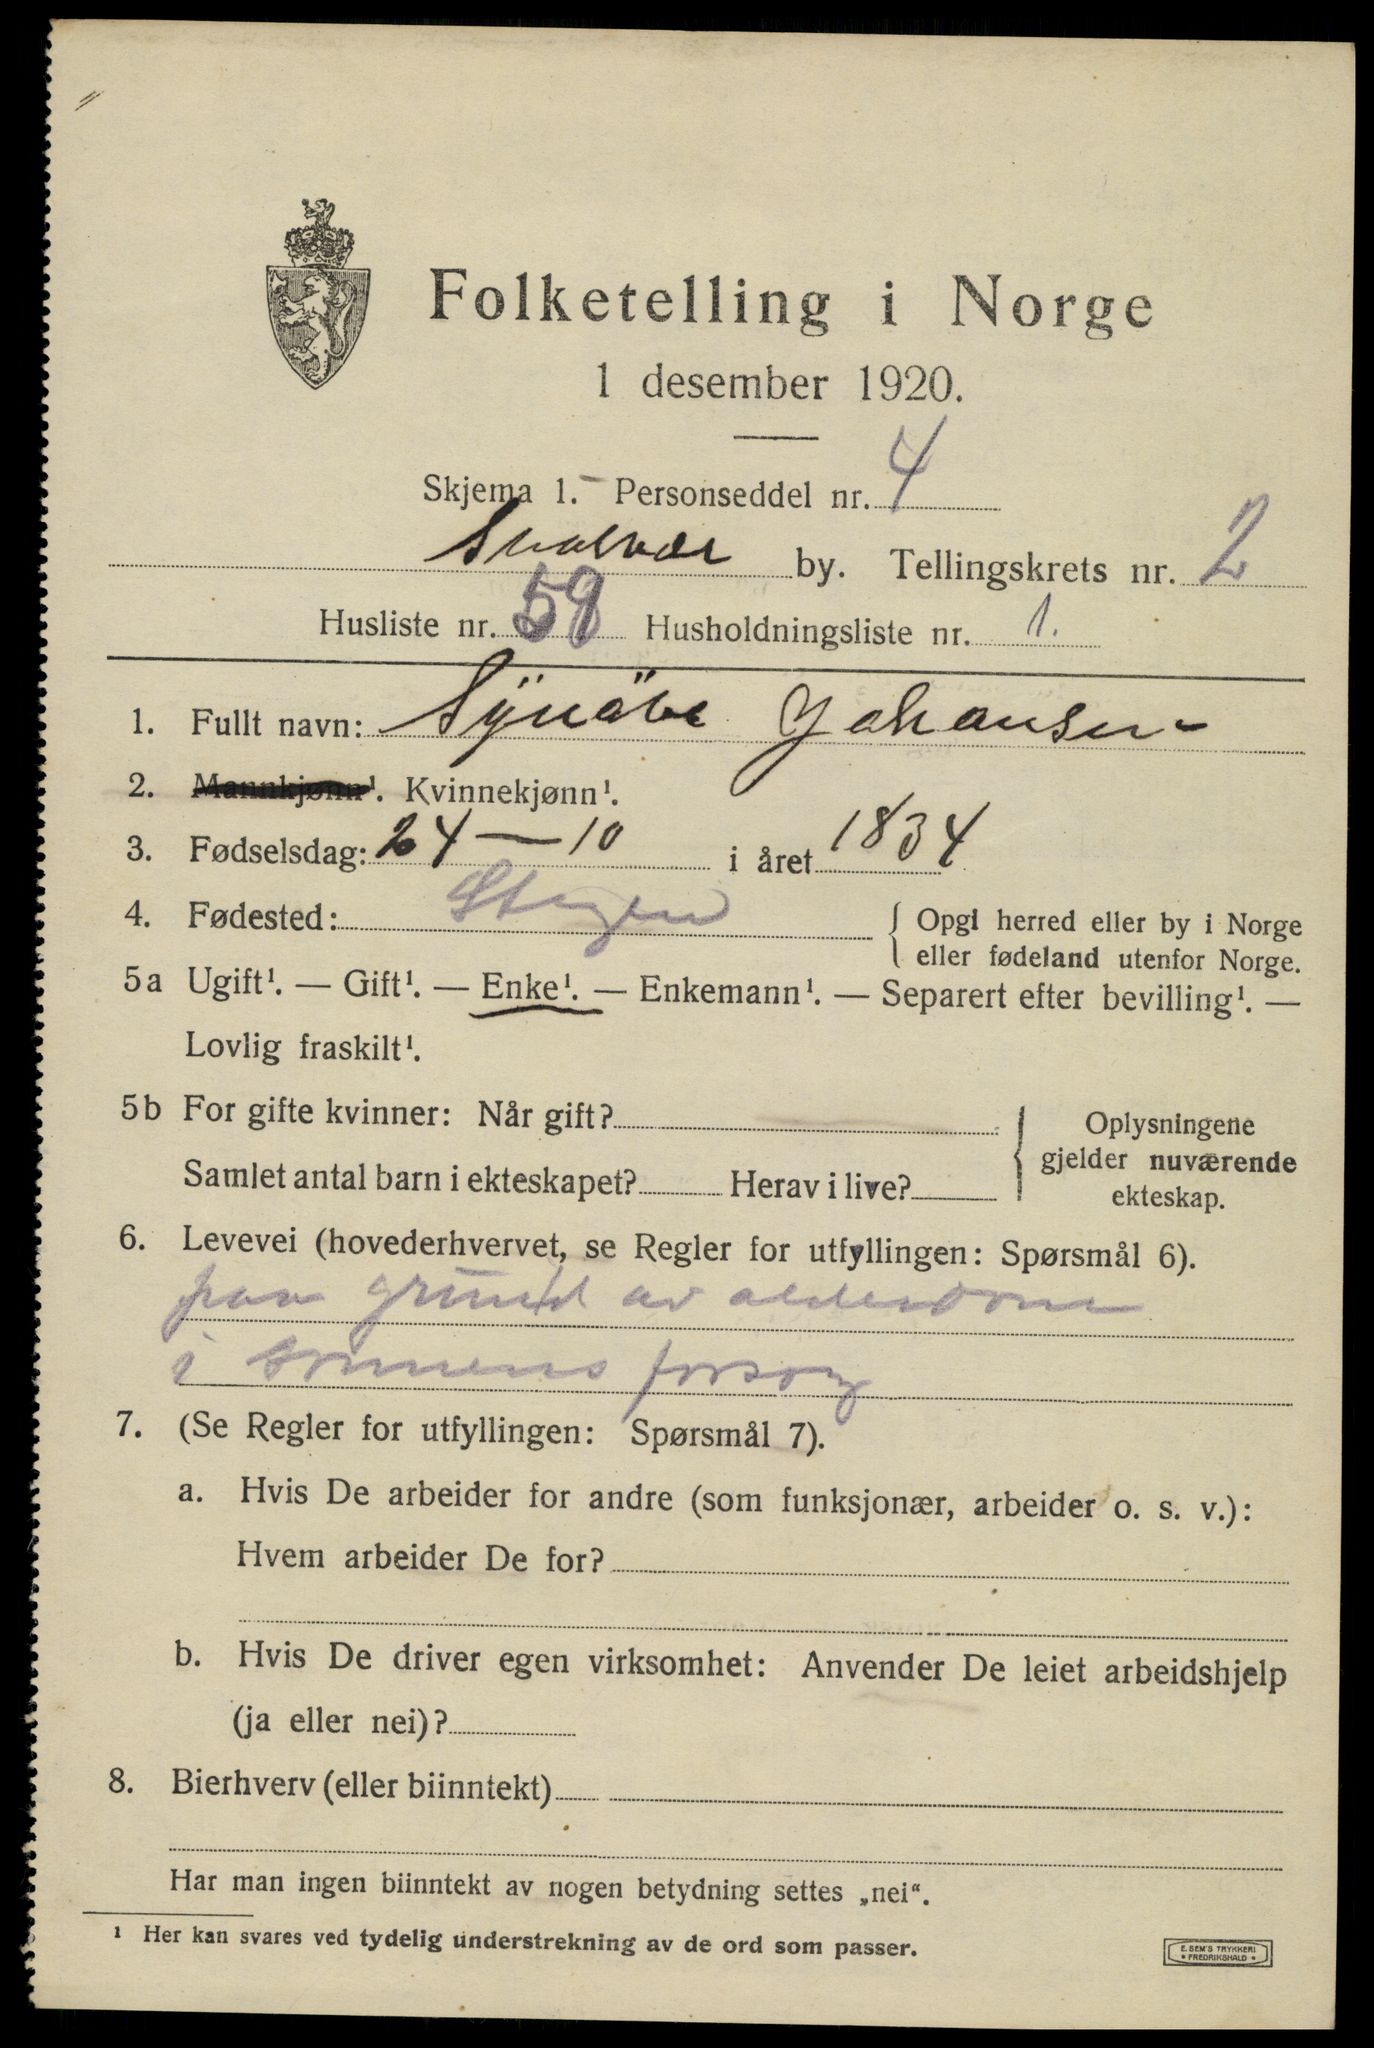 Folketelling i Norge
1 desember 1920.
Skjema 1. Personseddel nr. 4
Svolvær by. Tellingskrets nr. 2
Husliste nr. 59 Husholdningsliste nr. 1.
1. Fullt navn: Synöve Johansen
2. Mannkjønn¹. Kvinnekjønn¹.
3. Fødselsdag: 24 — 10 i året 1834
4. Fødested: Steigen { Opgi herred eller by i Norge
eller fødeland utenfor Norge.
5a Ugift¹. — Gift¹. — Enke¹. — Enkemann¹. — Separert efter bevilling¹. —
Lovlig fraskilt¹.
5b For gifte kvinner: Når gift? { Oplysningene
gjelder nuværende
Samlet antal barn i ekteskapet? Herav i live? ekteskap.
6. Levevei (hovederhvervet, se Regler for utfyllingen: Spørsmål 6).
paa grund av alderdom
i sønnens forsorg
7. (Se Regler for utfyllingen: Spørsmål 7).
a. Hvis De arbeider for andre (som funksjonær, arbeider o. s. v.):
Hvem arbeider De for?
b. Hvis De driver egen virksomhet: Anvender De leiet arbeidshjelp
(ja eller nei)?
8. Bierhverv (eller biinntekt)
Har man ingen biinntekt av nogen betydning settes „nei“.
¹ Her kan svares ved tydelig understrekning av de ord som passer.
E. SEM'S TRYKKERI
• FREDRIKSHALD •